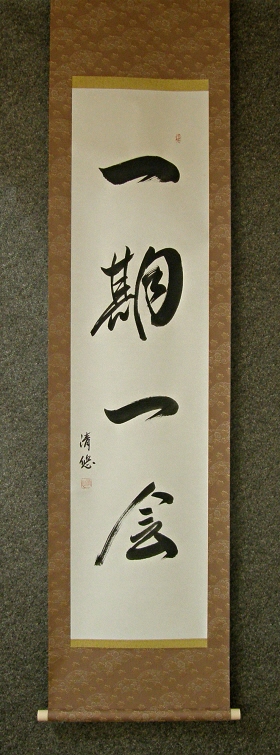 一期一会
清悠